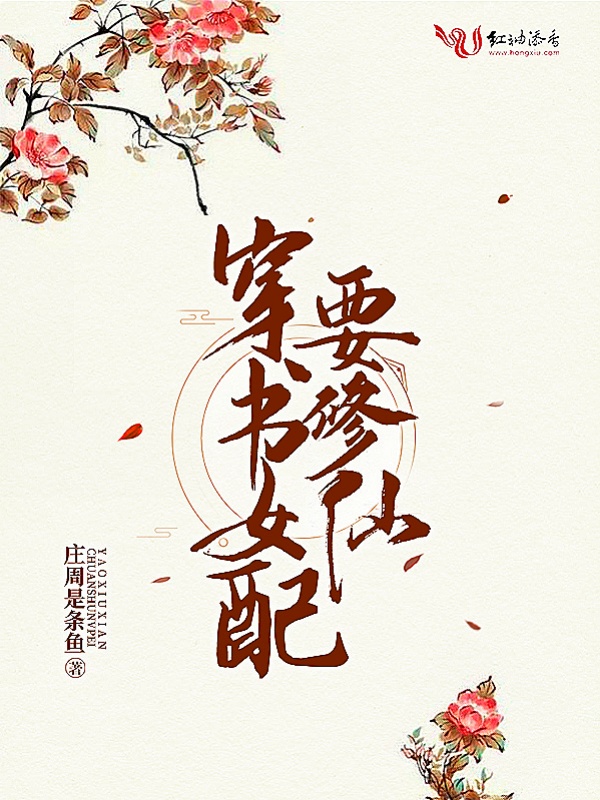 红袖添香
www.hongxiu.com
穿书女配
要修仙
庄周是条鱼 著
CHUANSHUNVPEI
YAOXIUXIAN